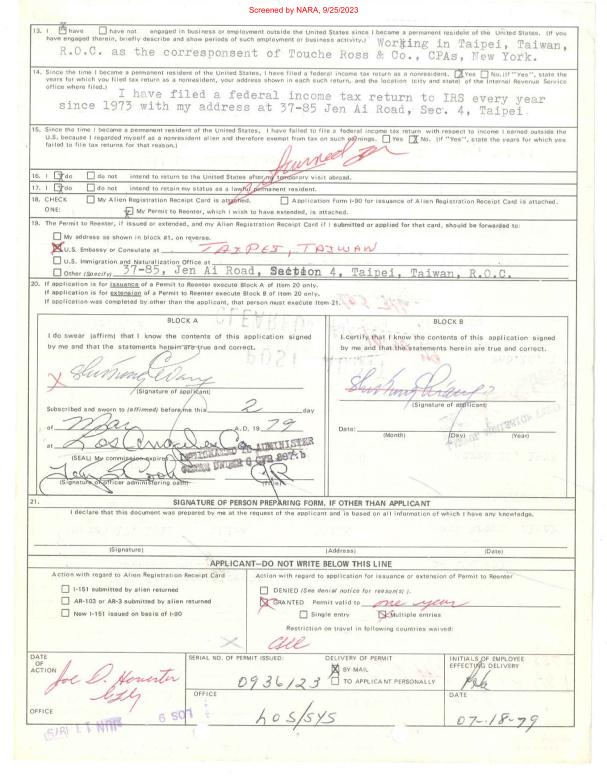 Screened by NARA, 9/25/2023
13. I ☒ have ☐ have not engaged in business or employment outside the United States since I became a permanent resident of the United States. (If you
have engaged therein, briefly describe and show periods of such employment or business activity.) Working in Taipei, Taiwan,
R.O.C. as the corresponsent of Touche Ross & Co., CPAs, New York.
14. Since the time I became a permanent resident of the United States, I have filed a federal income tax return as a nonresident. ☒ Yes ☐ No. (If "Yes", state the
years for which you filed tax return as a nonresident, your address shown in each such return, and the location (city and state) of the Internal Revenue Service
office where filed.)
I have filed a federal income tax return to IRS every year
since 1973 with my address at 37-85 Jen Ai Road, Sec. 4, Taipei
15. Since the time I became a permanent resident of the United States, I have failed to file a federal income tax return with respect to income I earned outside the
U.S. because I regarded myself as a nonresident alien and therefore exempt from tax on such earnings. ☐ Yes ☒ No. (If "Yes", state the years for which you
failed to file tax returns for that reason.)
16. I ☒ do ☐ do not intend to return to the United States after my temporary visit abroad.
17. I ☒ do ☐ do not intend to retain my status as a lawful permanent resident.
18. CHECK ☐ My Alien Registration Receipt Card is attached. ☐ Application Form I-90 for issuance of Alien Registration Receipt Card is attached.
ONE: ☒ My Permit to Reenter, which I wish to have extended, is attached.
19. The Permit to Reenter, if issued or extended, and my Alien Registration Receipt Card if I submitted or applied for that card, should be forwarded to:
☐ My address as shown in block #1, on reverse.
☒ U.S. Embassy or Consulate at TAIPEI, TAIWAN
☐ U.S. Immigration and Naturalization Office at
☐ Other (Specify) 37-85, Jen Ai Road, Section 4, Taipei, Taiwan, R.O.C.
20. If application is for issuance of a Permit to Reenter execute Block A of Item 20 only.
If application is for extension of a Permit to Reenter execute Block B of Item 20 only.
If application was completed by other than the applicant, that person must execute Item 21.
BLOCK A
I do swear (affirm) that I know the contents of this application signed
by me and that the statements herein are true and correct.
(Signature of applicant)
Subscribed and sworn to (affirmed) before me this 2 day
of May A.D. 1979
at Los Angeles Ca
(SEAL) My commission expires
DESIGNATED TO ADMINISTER
(Signature of officer administering oath) (Title)
BLOCK B
I certify that I know the contents of this application signed
by me and that the statements herein are true and correct.
(Signature of applicant)
Date:
(Month) (Day) (Year)
21. SIGNATURE OF PERSON PREPARING FORM, IF OTHER THAN APPLICANT
I declare that this document was prepared by me at the request of the applicant and is based on all information of which I have any knowledge.
(Signature) (Address) (Date)
APPLICANT—DO NOT WRITE BELOW THIS LINE
Action with regard to Alien Registration Receipt Card
☐ I-151 submitted by alien returned
☐ AR-103 or AR-3 submitted by alien returned
☐ New I-151 issued on basis of I-90
Action with regard to application for issuance or extension of Permit to Reenter
☐ DENIED (See denial notice for reason(s).)
☒ GRANTED Permit valid to one year
☐ Single entry ☒ Multiple entries
Restriction on travel in following countries waived:
DATE OF ACTION
OFFICE
SERIAL NO. OF PERMIT ISSUED:
0936123
DELIVERY OF PERMIT
☒ BY MAIL
☐ TO APPLICANT PERSONALLY
OFFICE
LOS/SYS
INITIALS OF EMPLOYEE EFFECTING DELIVERY
DATE
07-18-79